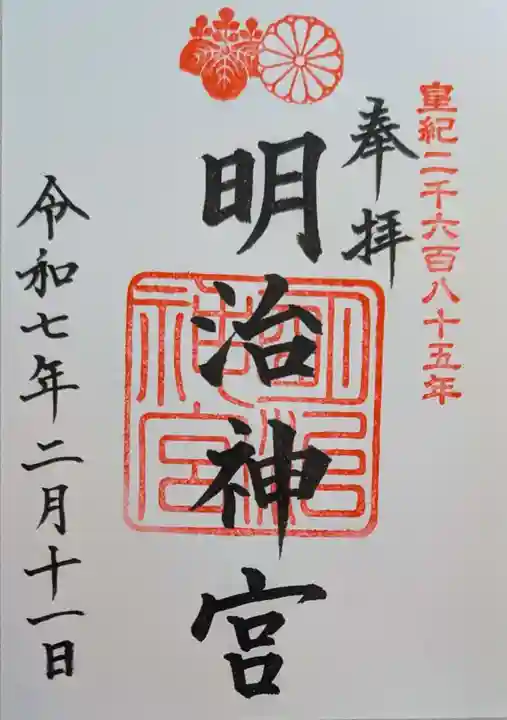 皇紀二千六百八十五年
奉拝
明治神宮
明治神宮
令和七年二月十一日